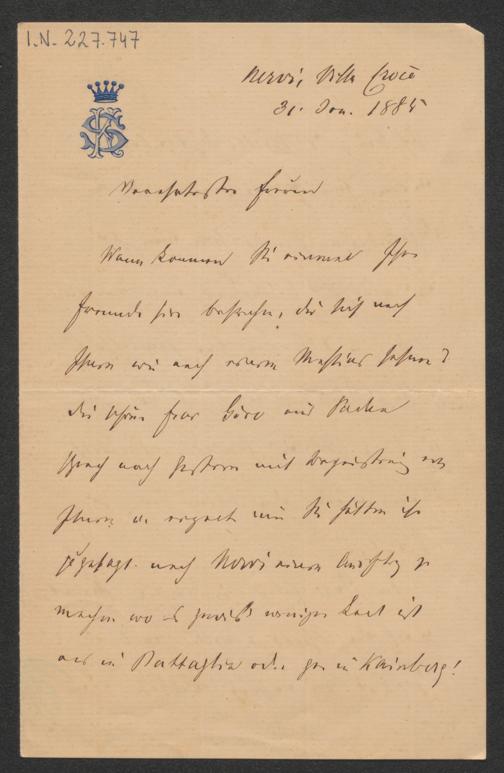 I.N. 227.747
Nervi, Villa Croce
31. Jan. 1885
Verehrtester Freund
Wann kommen Sie einmal Ihre
Freunde hier besuchen, die sich nach
Ihnen wie nach einem Messias sehnen?
Die schöne Frau aus Padua
sprach noch gestern mit Begeisterung von
Ihnen u. sagte mir Sie hätten ihr
zugesagt nach Nervi einen Ausflug zu
machen wo es gewiß weniger kalt ist
als in Battaglia oder gar in Kainberg!